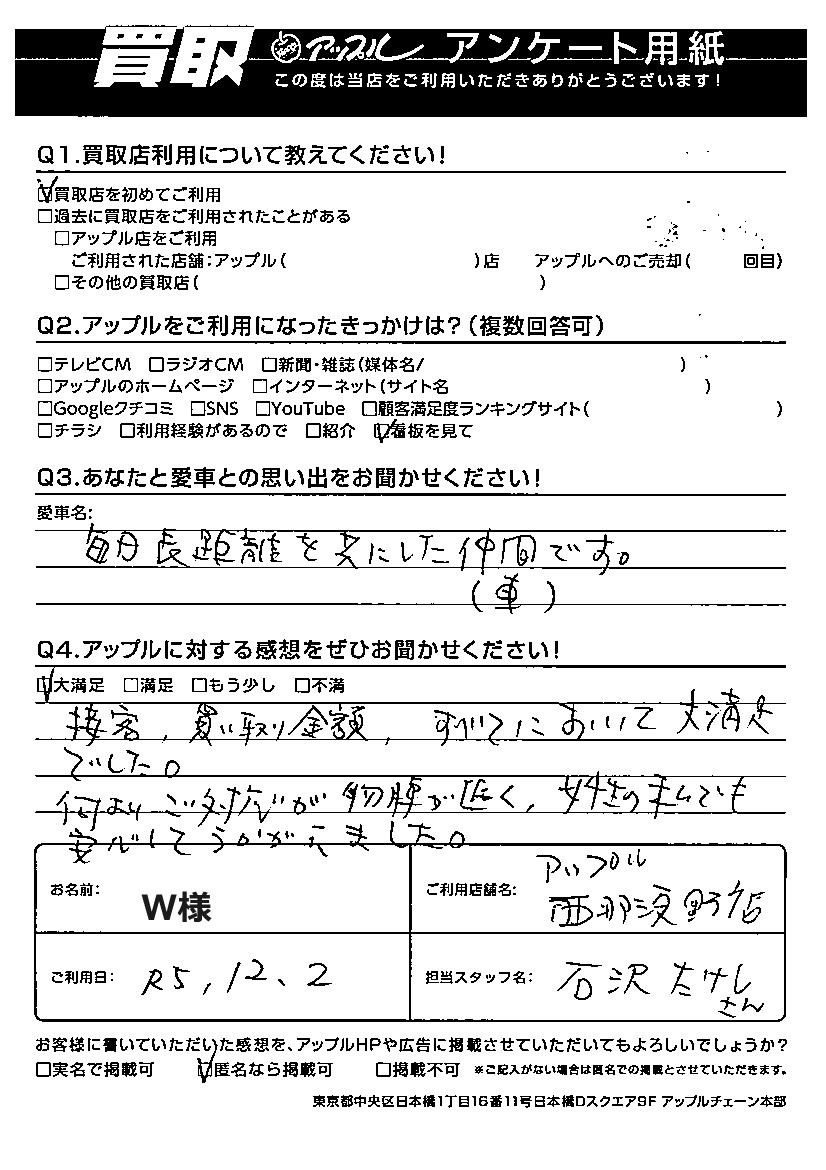 買取 アップル アンケート用紙
この度は当店をご利用いただきありがとうございます!
Q1.買取店利用について教えてください!
☑買取店を初めてご利用
□過去に買取店をご利用されたことがある
□アップル店をご利用
ご利用された店舗:アップル( )店 アップルへのご売却( 回目)
□その他の買取店( )
Q2.アップルをご利用になったきっかけは?(複数回答可)
□テレビCM □ラジオCM □新聞・雑誌(媒体名/ )
□アップルのホームページ □インターネット(サイト名 )
□Googleクチコミ □SNS □YouTube □顧客満足度ランキングサイト( )
□チラシ □利用経験があるので □紹介 ☑看板を見て
Q3.あなたと愛車との思い出をお聞かせください!
愛車名:
毎日長距離を共にした仲間です。
(車)
Q4.アップルに対する感想をぜひお聞かせください!
☑大満足 □満足 □もう少し □不満
接客,買い取り金額,すべてにおいて大満足
でした。
何よりご対応が物腰が低く,女性の私でも
安心してうかがえました。
お名前: W様
ご利用店舗名: アップル
西那須野店
ご利用日: R5,12、2
担当スタッフ名: 石沢たけし
さん
お客様に書いていただいた感想を、アップルHPや広告に掲載させていただいてもよろしいでしょうか?
□実名で掲載可 ☑匿名なら掲載可 □掲載不可 ※ご記入がない場合は匿名での掲載とさせていただきます。
東京都中央区日本橋1丁目16番11号日本橋Dスクエア9F アップルチェーン本部